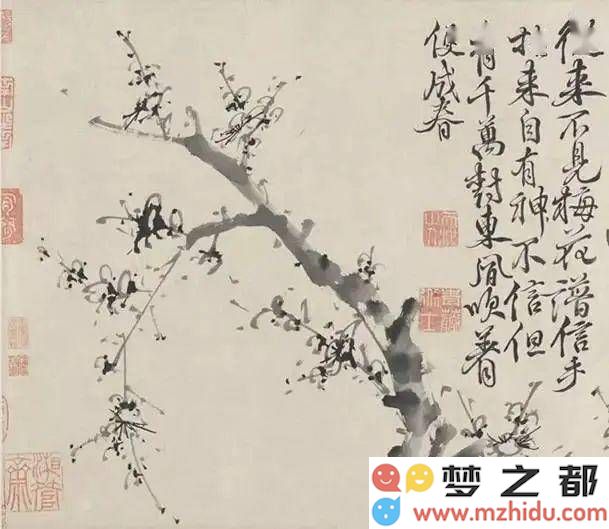 從来不見梅花譜信手
拈来自有神不信但
看千萬樹東風吹著
便成春
湘管齋
梦之都
www.mzhidu.com